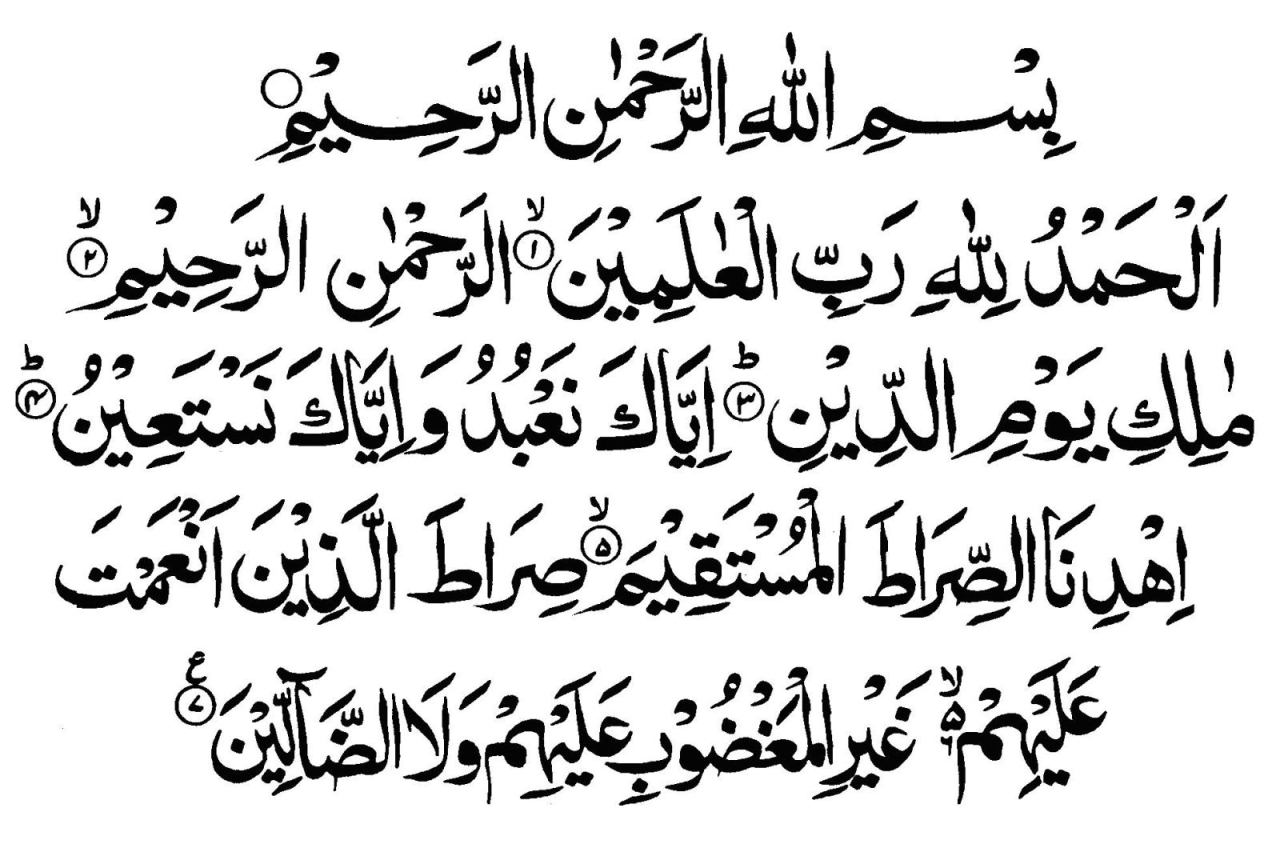 بِسْمِ اللّٰهِ الرَّحْمٰنِ الرَّحِيْمِ ○
اَلْحَمْدُ لِلّٰهِ رَبِّ الْعٰلَمِيْنَ ۙ‏﴿۱﴾ الرَّحْمٰنِ الرَّحِيْمِ ۙ‏﴿۲﴾
مٰلِكِ يَوْمِ الدِّيْنِ ؕ‏﴿۳﴾ اِيَّاكَ نَعْبُدُ وَاِيَّاكَ نَسْتَعِيْنُ ؕ‏﴿۴﴾
اِهْدِنَا الصِّرَاطَ الْمُسْتَقِيْمَ ۙ‏﴿۵﴾ صِرَاطَ الَّذِيْنَ اَنْعَمْتَ
عَلَيْهِمْ ۙ۵۶ غَيْرِ الْمَغْضُوْبِ عَلَيْهِمْ وَلَا الضَّآلِّيْنَ ﴿۷﴾ ع